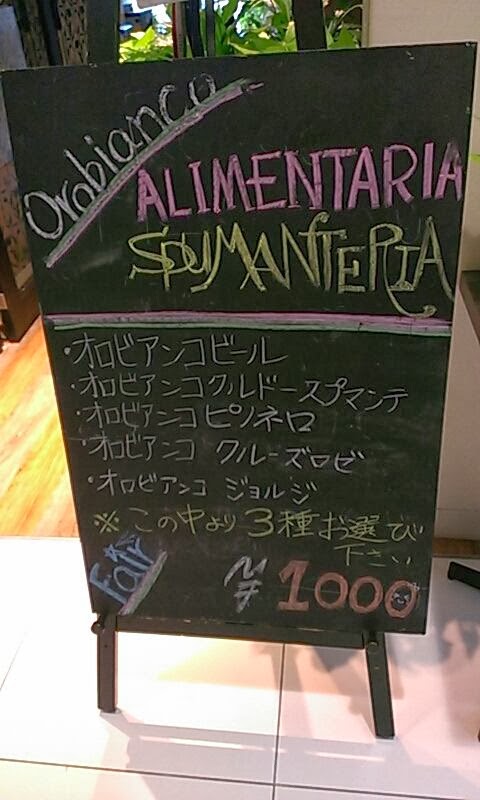 Orobianco
ALIMENTARIA
SPUMANTERIA
・オロビアンコビール
・オロビアンコクルドースプマンテ
・オロビアンコピノネロ
・オロビアンコ クルーズロゼ
・オロビアンコ ジョルジ
※この中より3種お選び
下さい
Fair
¥1000